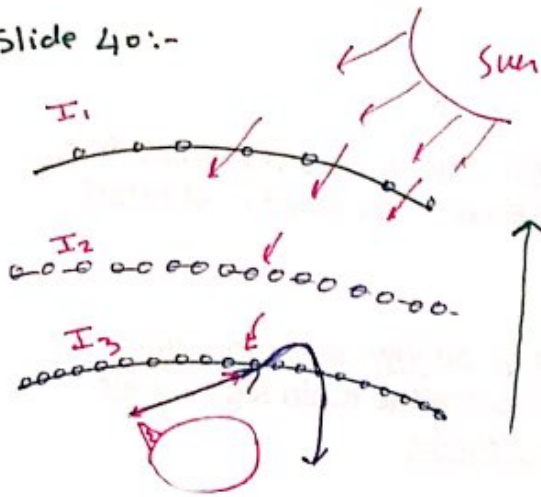 Slide 40:-
Sun
I₁
I₂
I₃